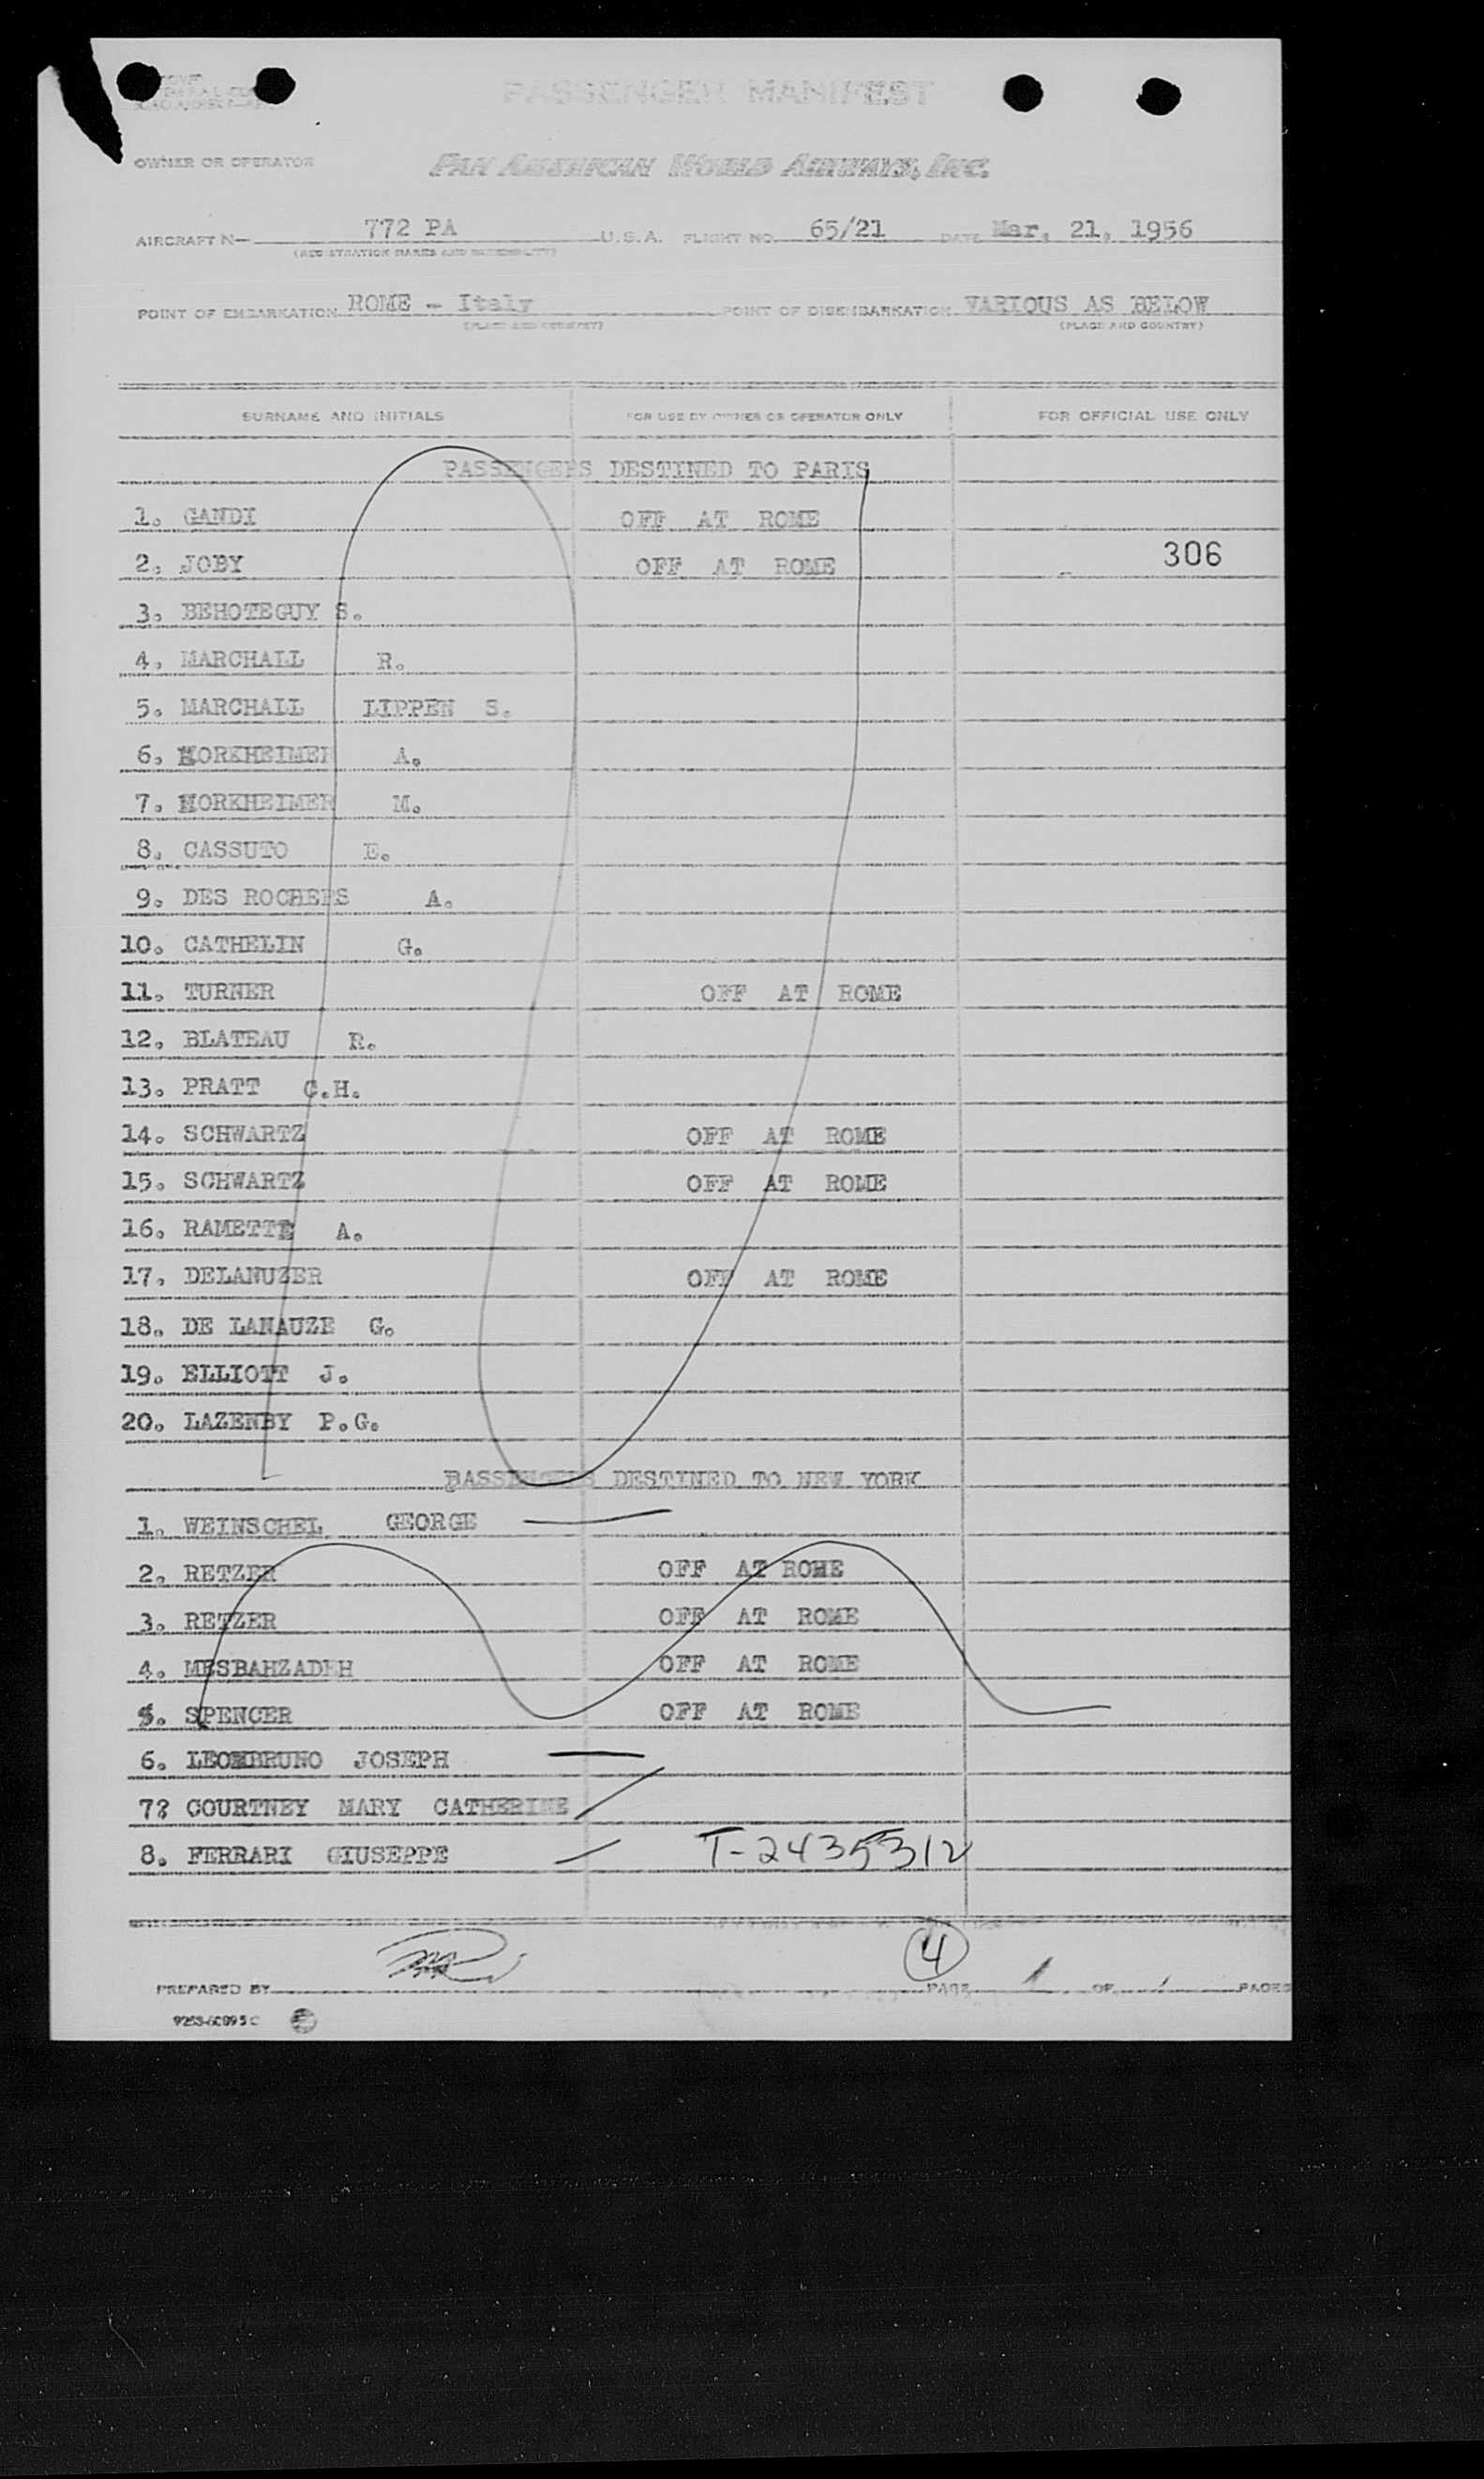 PASSENGER MANIFEST
OWNER OR OPERATOR PAN AMERICAN WORLD AIRWAYS, INC.
AIRCRAFT N— 772 PA U.S.A. FLIGHT NO. 65/21 DATE Mar. 21, 1956
(REGISTRATION MARKS AND NATIONALITY)
POINT OF EMBARKATION ROME - Italy POINT OF DISEMBARKATION VARIOUS AS BELOW
(PLACE AND COUNTRY) (PLACE AND COUNTRY)
SURNAME AND INITIALS FOR USE BY OWNER OR OPERATOR ONLY FOR OFFICIAL USE ONLY
PASSENGERS DESTINED TO PARIS
1. GANDI OFF AT ROME
2. JOBY OFF AT ROME 306
3. BEHOTEGUY S.
4. MARCHALL R.
5. MARCHALL LIPPEN S.
6. HORKHEIMER A.
7. HORKHEIMER M.
8. CASSUTO E.
9. DES ROCHERS A.
10. CATHELIN G.
11. TURNER OFF AT ROME
12. BLATEAU R.
13. PRATT C.H.
14. SCHWARTZ OFF AT ROME
15. SCHWARTZ OFF AT ROME
16. RAMETTE A.
17. DELANUZER OFF AT ROME
18. DE LANAUZE G.
19. ELLIOTT J.
20. LAZENBY P.G.
PASSENGERS DESTINED TO NEW YORK
1. WEINSCHEL GEORGE
2. RETZER OFF AT ROME
3. RETZER OFF AT ROME
4. MESBAHZADEH OFF AT ROME
5. SPENCER OFF AT ROME
6. LEOMBRUNO JOSEPH
7? COURTNEY MARY CATHERINE
8. FERRARI GIUSEPPE T-2435312
4
PREPARED BY PAGE 1 OF 1 PAGES